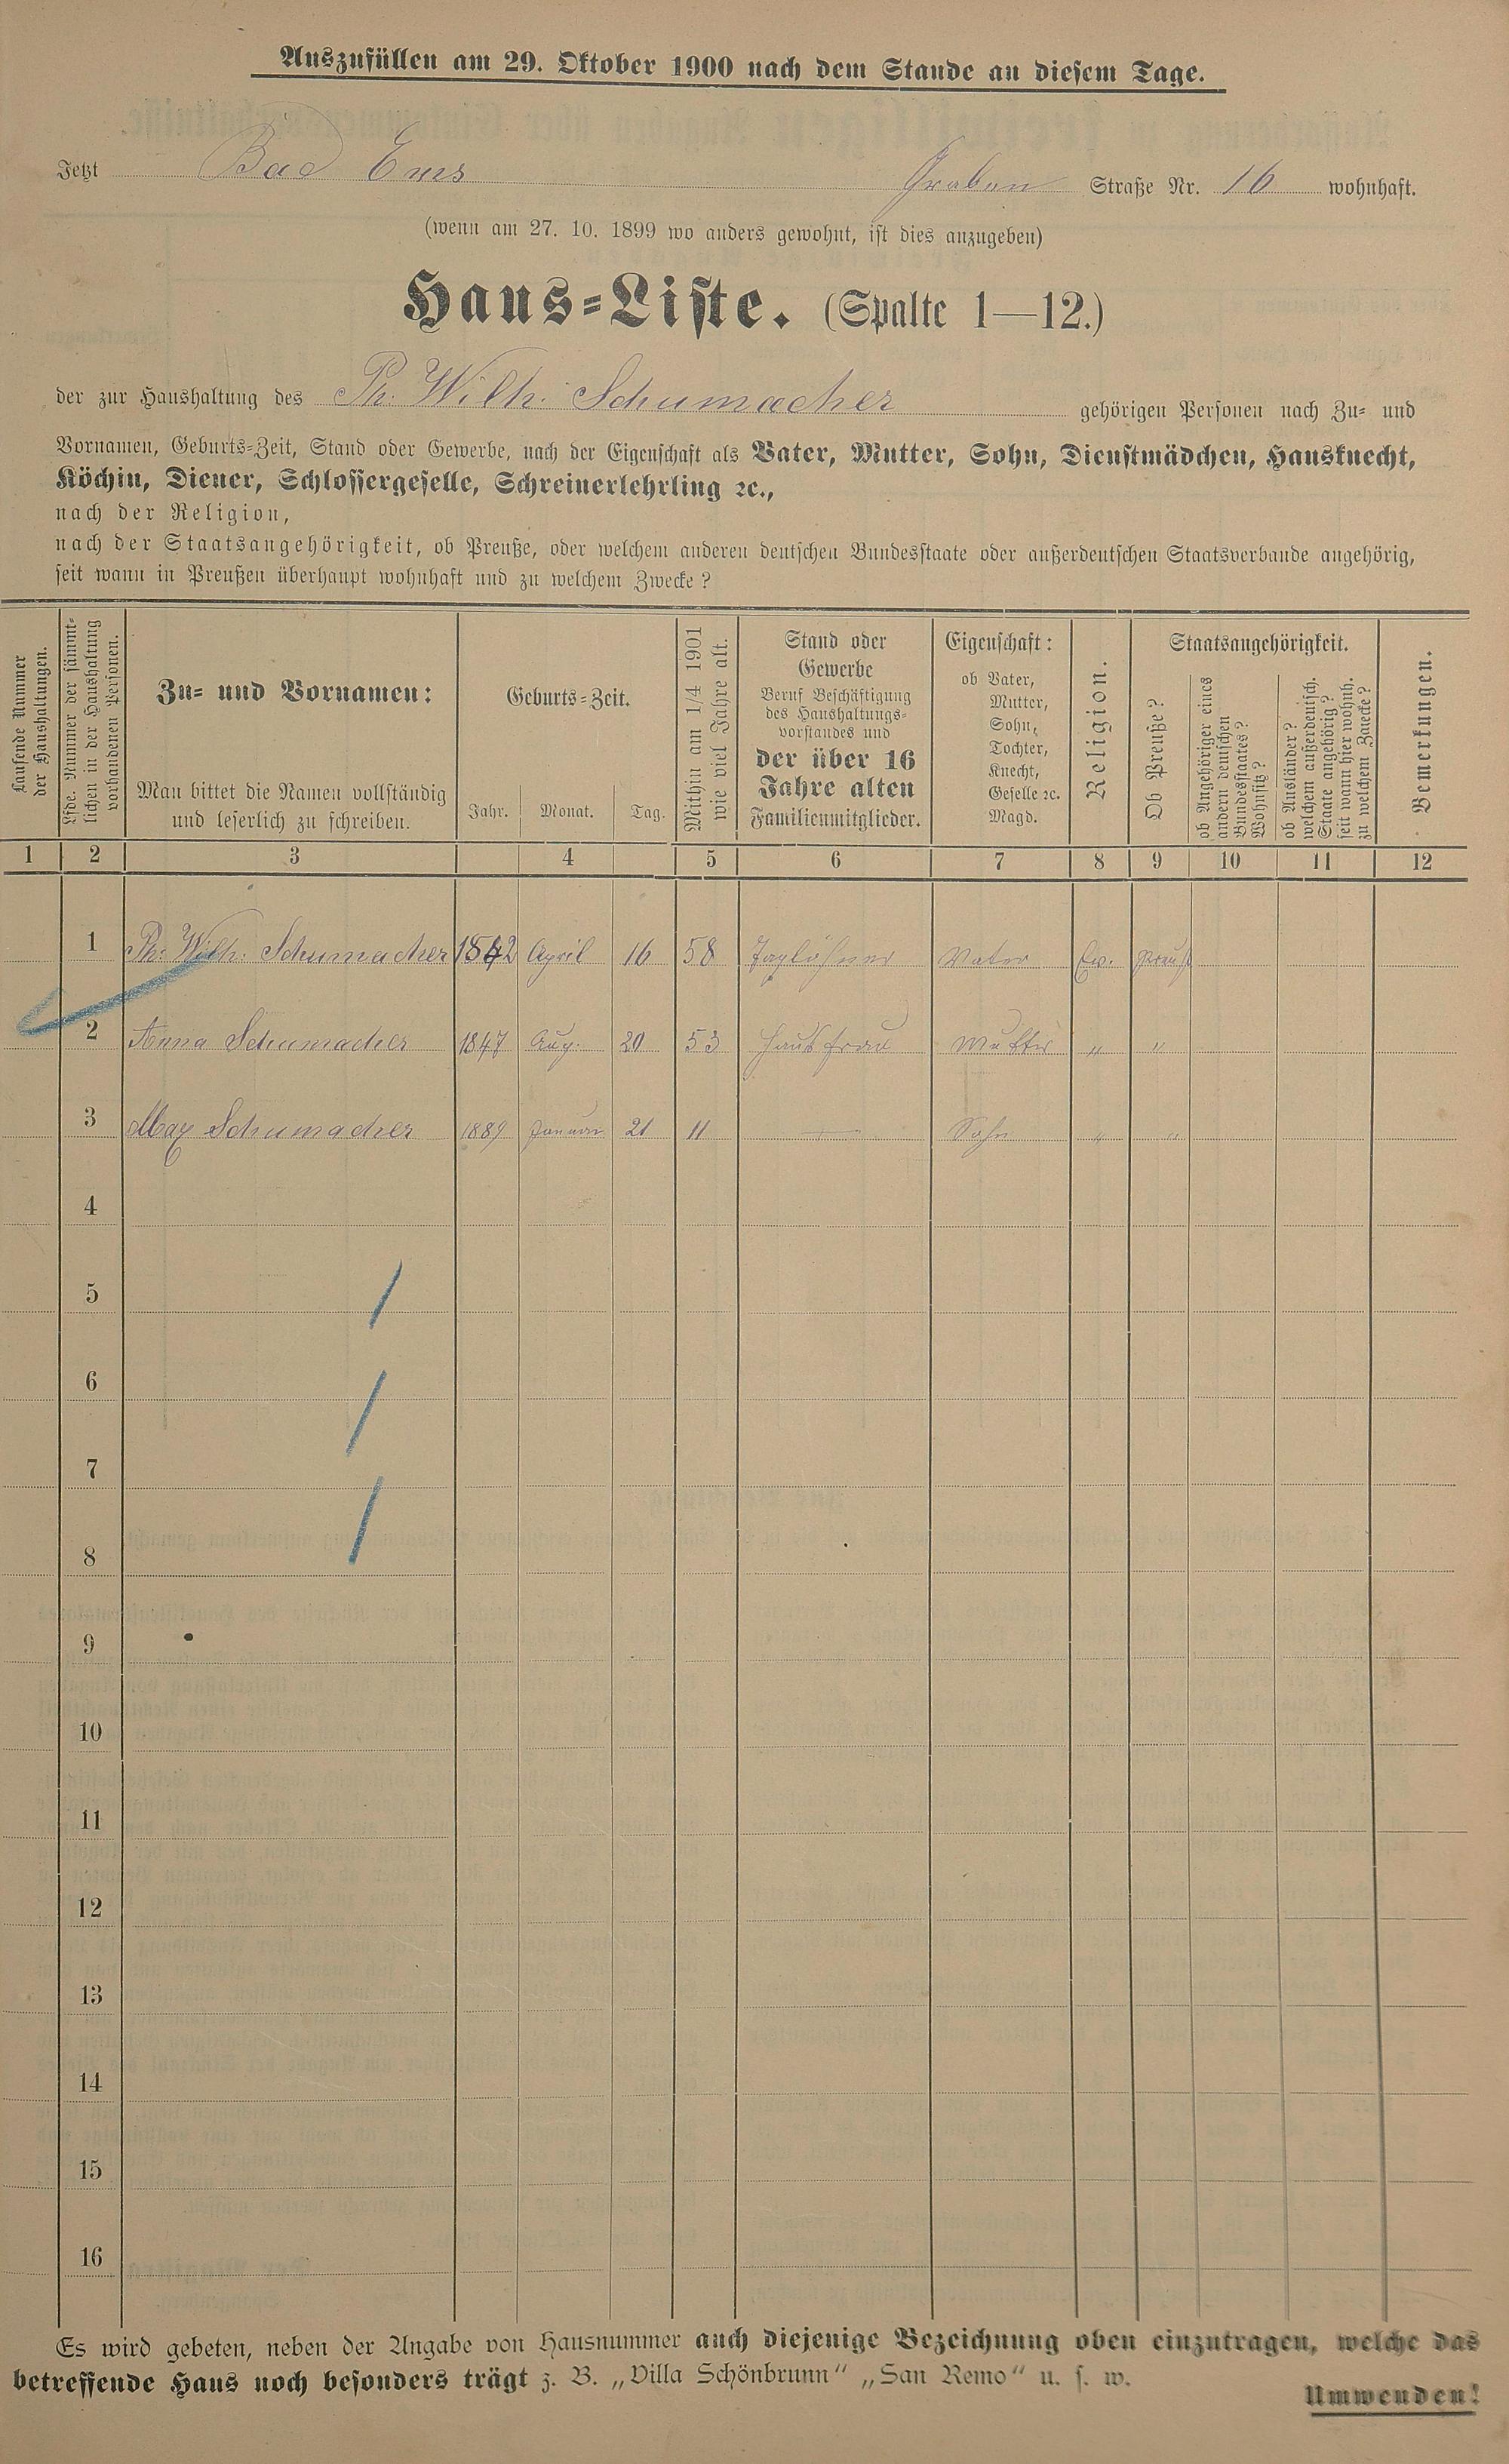 Auszufüllen am 29. Oktober 1900 nach dem Stande an diesem Tage.
Jetzt Bad Ems Graben Straße Nr. 16 wohnhaft.
(wenn am 27. 10. 1899 wo anders gewohnt, ist dies anzugeben)
Haus-Liste. (Spalte 1—12.)
der zur Haushaltung des Ph. Wilh. Schumacher gehörigen Personen nach Zu- und
Vornamen, Geburts-Zeit, Stand oder Gewerbe, nach der Eigenschaft als Vater, Mutter, Sohn, Dienstmädchen, Hausknecht,
Köchin, Diener, Schlossergeselle, Schreinerlehrling ꝛc.,
nach der Religion,
nach der Staatsangehörigkeit, ob Preuße, oder welchem anderen deutschen Bundesstaate oder außerdeutschen Staatsverbande angehörig,
seit wann in Preußen überhaupt wohnhaft und zu welchem Zwecke?
Laufende Nummer
der Haushaltungen.
Lfde. Nummer der sämmt-
lichen in der Haushaltung
vorhandenen Personen.
Zu- und Vornamen:
Man bittet die Namen vollständig
und leserlich zu schreiben.
Geburts-Zeit.
Jahr. Monat. Tag.
Mithin am 1/4 1901
wie viel Jahre alt.
Stand oder
Gewerbe
Beruf Beschäftigung
des Haushaltungs-
vorstandes und
der über 16
Jahre alten
Familienmitglieder.
Eigenschaft:
ob Vater,
Mutter,
Sohn,
Tochter,
Knecht,
Geselle ꝛc.
Magd.
Religion.
Staatsangehörigkeit.
Ob Preuße?
ob Angehöriger eines
andern deutschen
Bundesstaates?
Wohnsitz?
ob Ausländer?
welchem außerdeutsch.
Staate angehörig?
seit wann hier wohnh.
zu welchem Zwecke?
Bemerkungen.
1 2 3 4 5 6 7 8 9 10 11 12
1 Ph. Wilh. Schumacher 1842 April 16 58 Taglöhner Vater Ev. Preuße
2 Anna Schumacher 1847 Aug. 20 53 Hausfrau Mutter " "
3 Max Schumacher 1889 Januar 21 11 — Sohn " "
4
5
6
7
8
9
10
11
12
13
14
15
16
Es wird gebeten, neben der Angabe von Hausnummer auch diejenige Bezeichnung oben einzutragen, welche das
betreffende Haus noch besonders trägt z. B. „Villa Schönbrunn“ „San Remo“ u. s. w.
Umwenden!